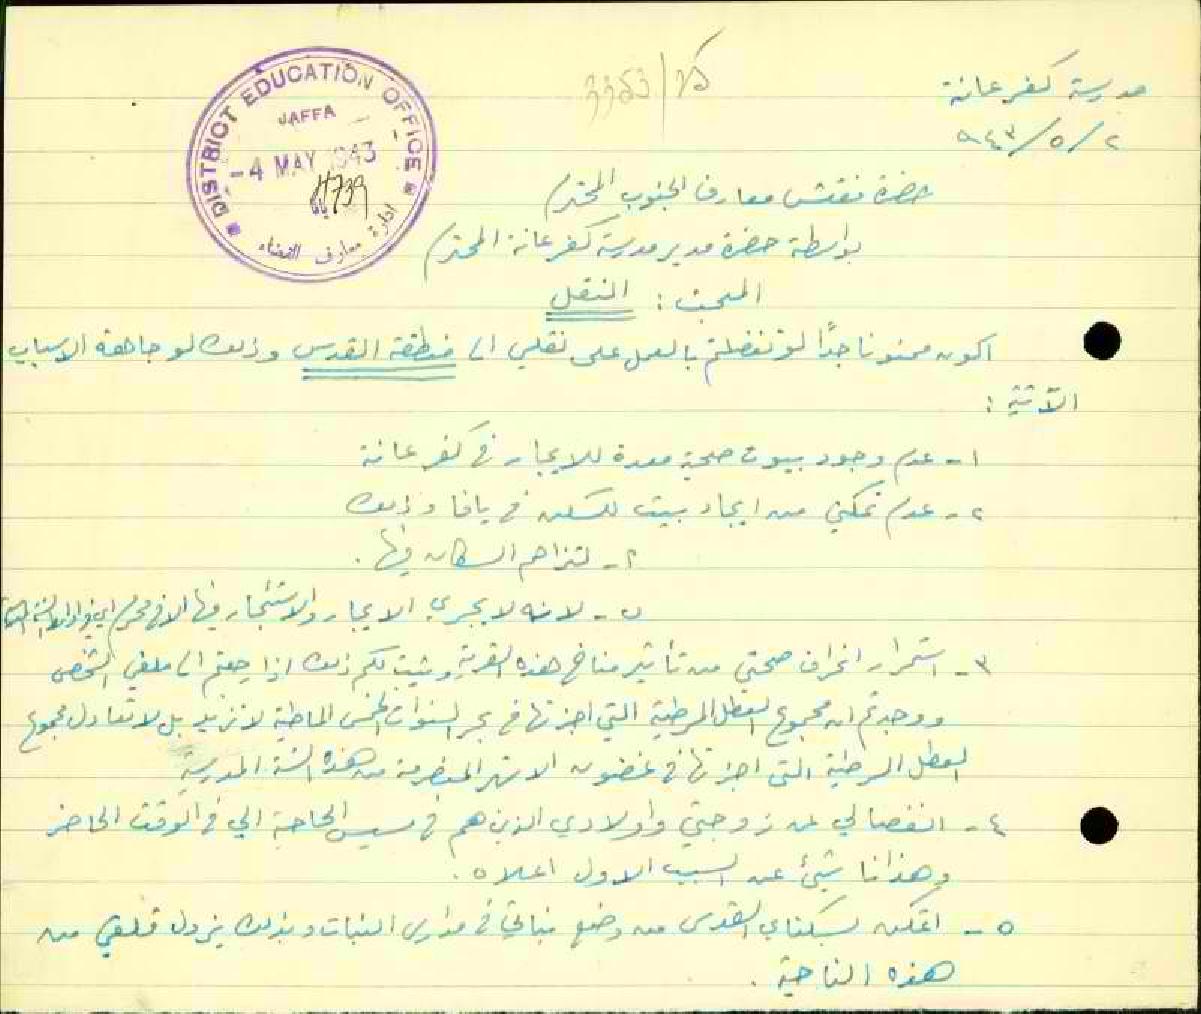 مدرسة كفرعانة
٢/٥/٩٤٣
DISTRICT EDUCATION OFFICE
JAFFA
-4 MAY 1943
4739
يافا
ادارة معارف القضاء
حضرة مفتش معارف الجنوب المحترم
بواسطة حضرة مدير مدرسة كفرعانة المحترم
المبحث : النقل
اكون ممنونا جدًا لو تفضلتم بالعمل على نقلي الى منطقة القدس وذلك لوجاهة الاسباب
الآتية :
١- عدم وجود بيوت صحية معدة للايجار في كفرعانة
٢- عدم تمكني من ايجاد بيت للسكن في يافا وذلك
٢- لتزاحم السكان فيها .
ب- لانه لا يجري الايجار والاستئجار فيها الا في محرم اي في اوائل السنة
٣- استمرار انحراف صحتي من تأثير مناخ هذه القرية ويثبت لكم ذلك اذا رجعتم الى ملفي الشخصي
ووجدتم ان مجموع العطل المرضية التي اجزتها في بحر السنوات الخمس الماضية لا تزيد بل لا تعادل مجموع
العطل المرضية التي اجزتها في غضون الاشهر المنصرمة من هذه السنة المدرسية
٤- انفصالي عن زوجتي واولادي الذين هم في مسيس الحاجة الي في الوقت الحاضر
وهذا ناشئ عن السبب الاول اعلاه .
٥- اتمكن بسكناي القدس من وضع بناتي في مدارس البنات وبذلك يزول قلقي من
هذه الناحية .